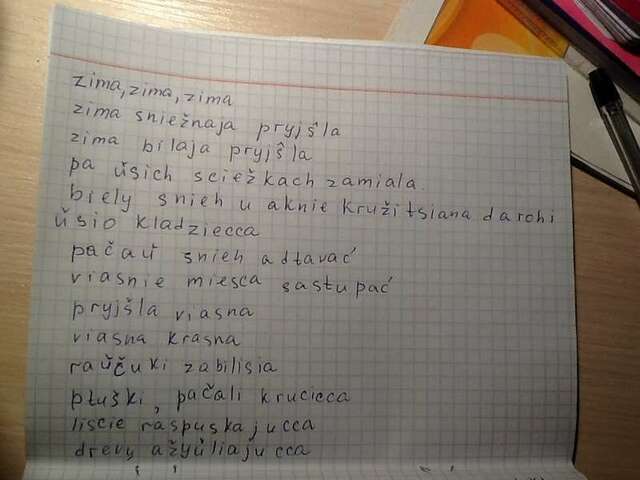 zima, zima, zima
zima sniežnaja pryjšla
zima bilaja pryjšla
pa ŭsich sciežkach zamiala.
biely snieh u aknie kružitsiana darohi
ŭsio kladziecca
pačaŭ snieh adtavać
viasnie miesca sastupać
pryjšla viasna
viasna krasna
raŭčuki zabilisia
ptuški, pačali krucicca
liscie raspuskajucca
drevy ažyŭliajucca